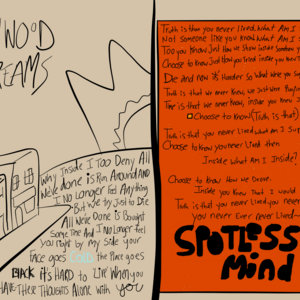 WOOD
REAMS
Why Inside I Too Deny All
We've done is Run Around And
I No Longer Feel Anything
But We try Just to Die
All We've Done is Bought
Some Time And I No Longer feel
you Right by My side your
face goes COLD the Place goes
BLACK it's HARD to Live When you
HAVE These THOUGHTS Alone with you
Truth is How you never lived What Am I
Not Someone like you know What Am I
Too you know Just How we show inside
Choose to know Just How you lived inside you know
Die And now it's Harder So What Were you
Truth is that we never know, we Just Were
Time is that we never know, inside you knew
Choose to know (Truth is that)
Truth is that you never lived what Am I
Choose to know you never lived then
Inside What Am I Inside?
Choose to know How we Drove
Inside you Knew That I would
Truth is that you never lived you never
you never Ever never Lived
SPOTLESS
Mind